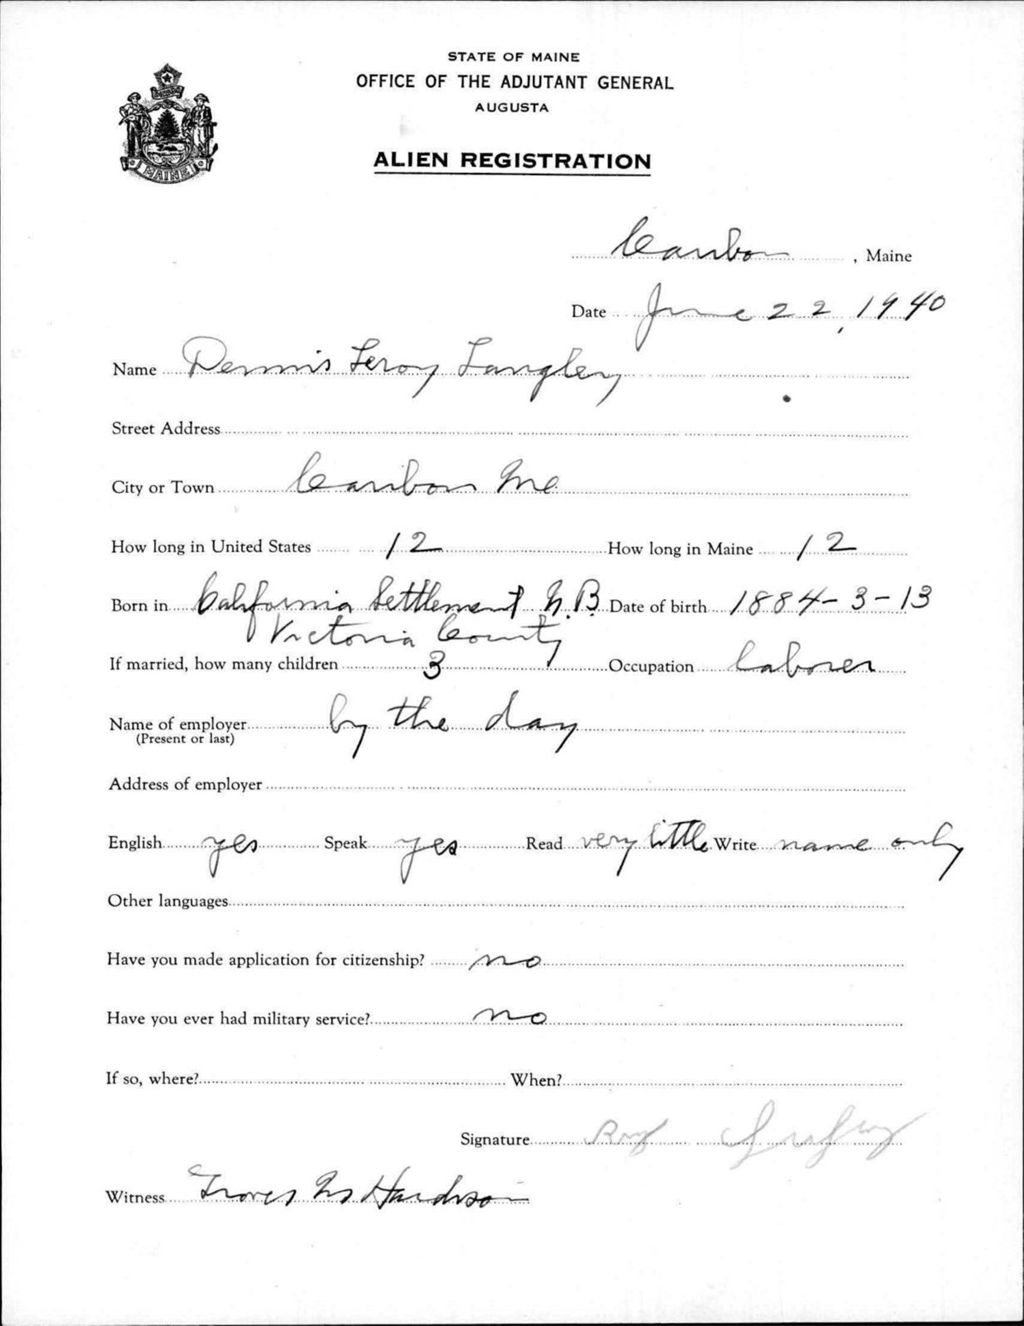 STATE OF MAINE
OFFICE OF THE ADJUTANT GENERAL
AUGUSTA
ALIEN REGISTRATION
MAINE
Caribou, Maine
Date June 22, 1940
Name Dennis Leroy Langley
Street Address
City or Town Caribou Me
How long in United States 12 How long in Maine 12
Born in California Settlement N.B. Date of birth 1884-3-13
Victoria County
If married, how many children 3 Occupation laborer
Name of employer by the day
(Present or last)
Address of employer
English yes Speak yes Read very little Write name only
Other languages
Have you made application for citizenship? no
Have you ever had military service? no
If so, where? When?
Signature Roy
Witness Hardison